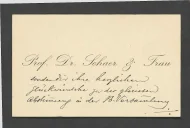 Prof. Dr. Schaer & Frau
senden Ihre herzlichen
Glückwünsche zu der
in der B. Versammlung